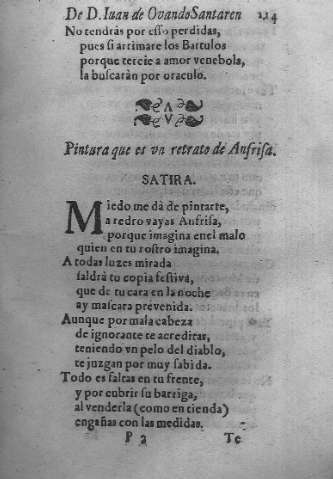 De D. Iuan de Ovando Santaren 114
No tendràs por esso perdidas,
pues si arrimare los Bartulos
porque tercie a amor venebola,
la buscaràn por oraculo.
Pintura que es vn retrato de Anfrisa.
SATIRA.
Miedo me dà de pintarte,
a redro vayas Anfrisa,
porque imagina en el malo
quien en tu rostro imagina.
A todas luzes mirada
saldrà tu copia festiva,
que de tu cara en la noche
ay mascara prevenida.
Aunque por mala cabeza
de ignorante te acreditar,
teniendo vn pelo del diablo,
te juzgan por muy sabida.
Todo es faltas en tu frente,
y por cubrir su barriga,
al venderla (como en tienda)
engañas con las medidas.
P 2 Te